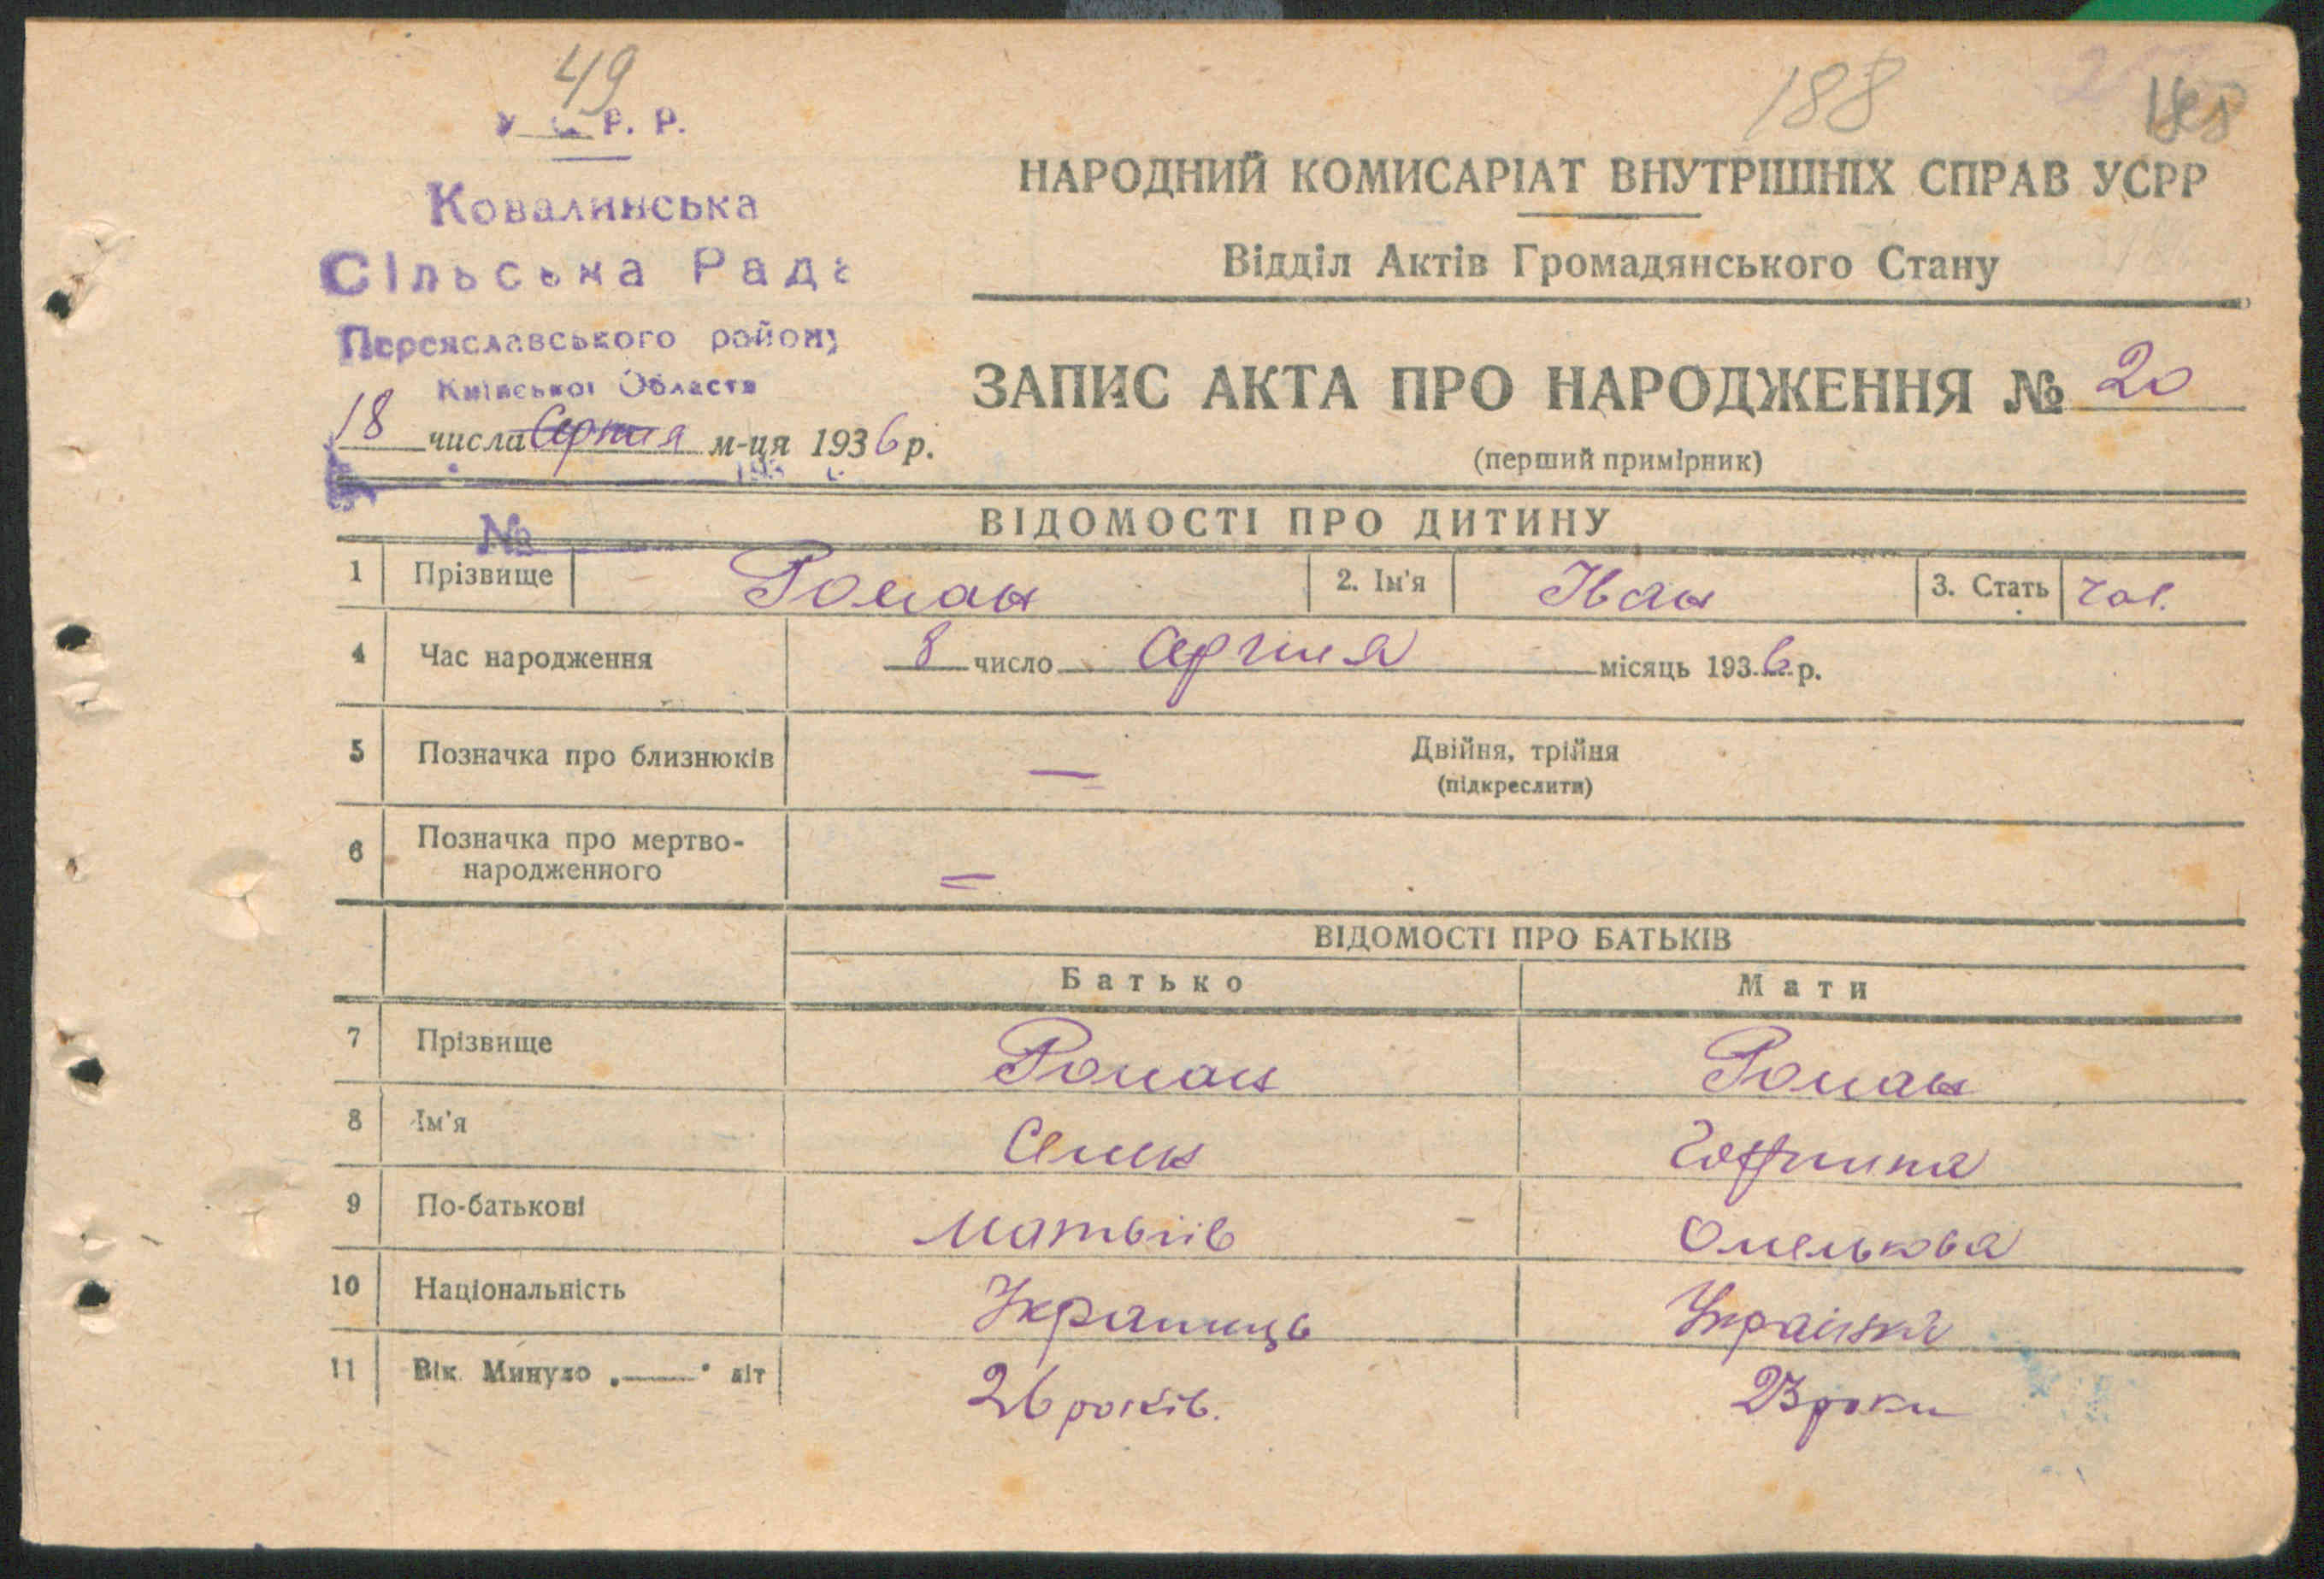 49
188
У. С. Р. Р.
Ковалинська
Сільська Рада
Переяславського району
Київської Области
18 числа Серпня м-ця 1936 р.
№
НАРОДНИЙ КОМИСАРІАТ ВНУТРІШНІХ СПРАВ УСРР
Відділ Актів Громадянського Стану
ЗАПИС АКТА ПРО НАРОДЖЕННЯ № 20
(перший примірник)
ВІДОМОСТІ ПРО ДИТИНУ
1 Прізвище Роман 2. Ім'я Іван 3. Стать чол.
4 Час народження 8 число Серпня місяць 1936 р.
5 Позначка про близнюків — Двійня, трійня
(підкреслити)
6 Позначка про мертво-
народженного =
ВІДОМОСТІ ПРО БАТЬКІВ
Батько Мати
7 Прізвище Роман Роман
8 Ім'я Семен
9 По-батькові Матвіів Омелькова
10 Національність Украінець Украінка
11 Вік. Минуло „—" літ 26 років. 23 роки